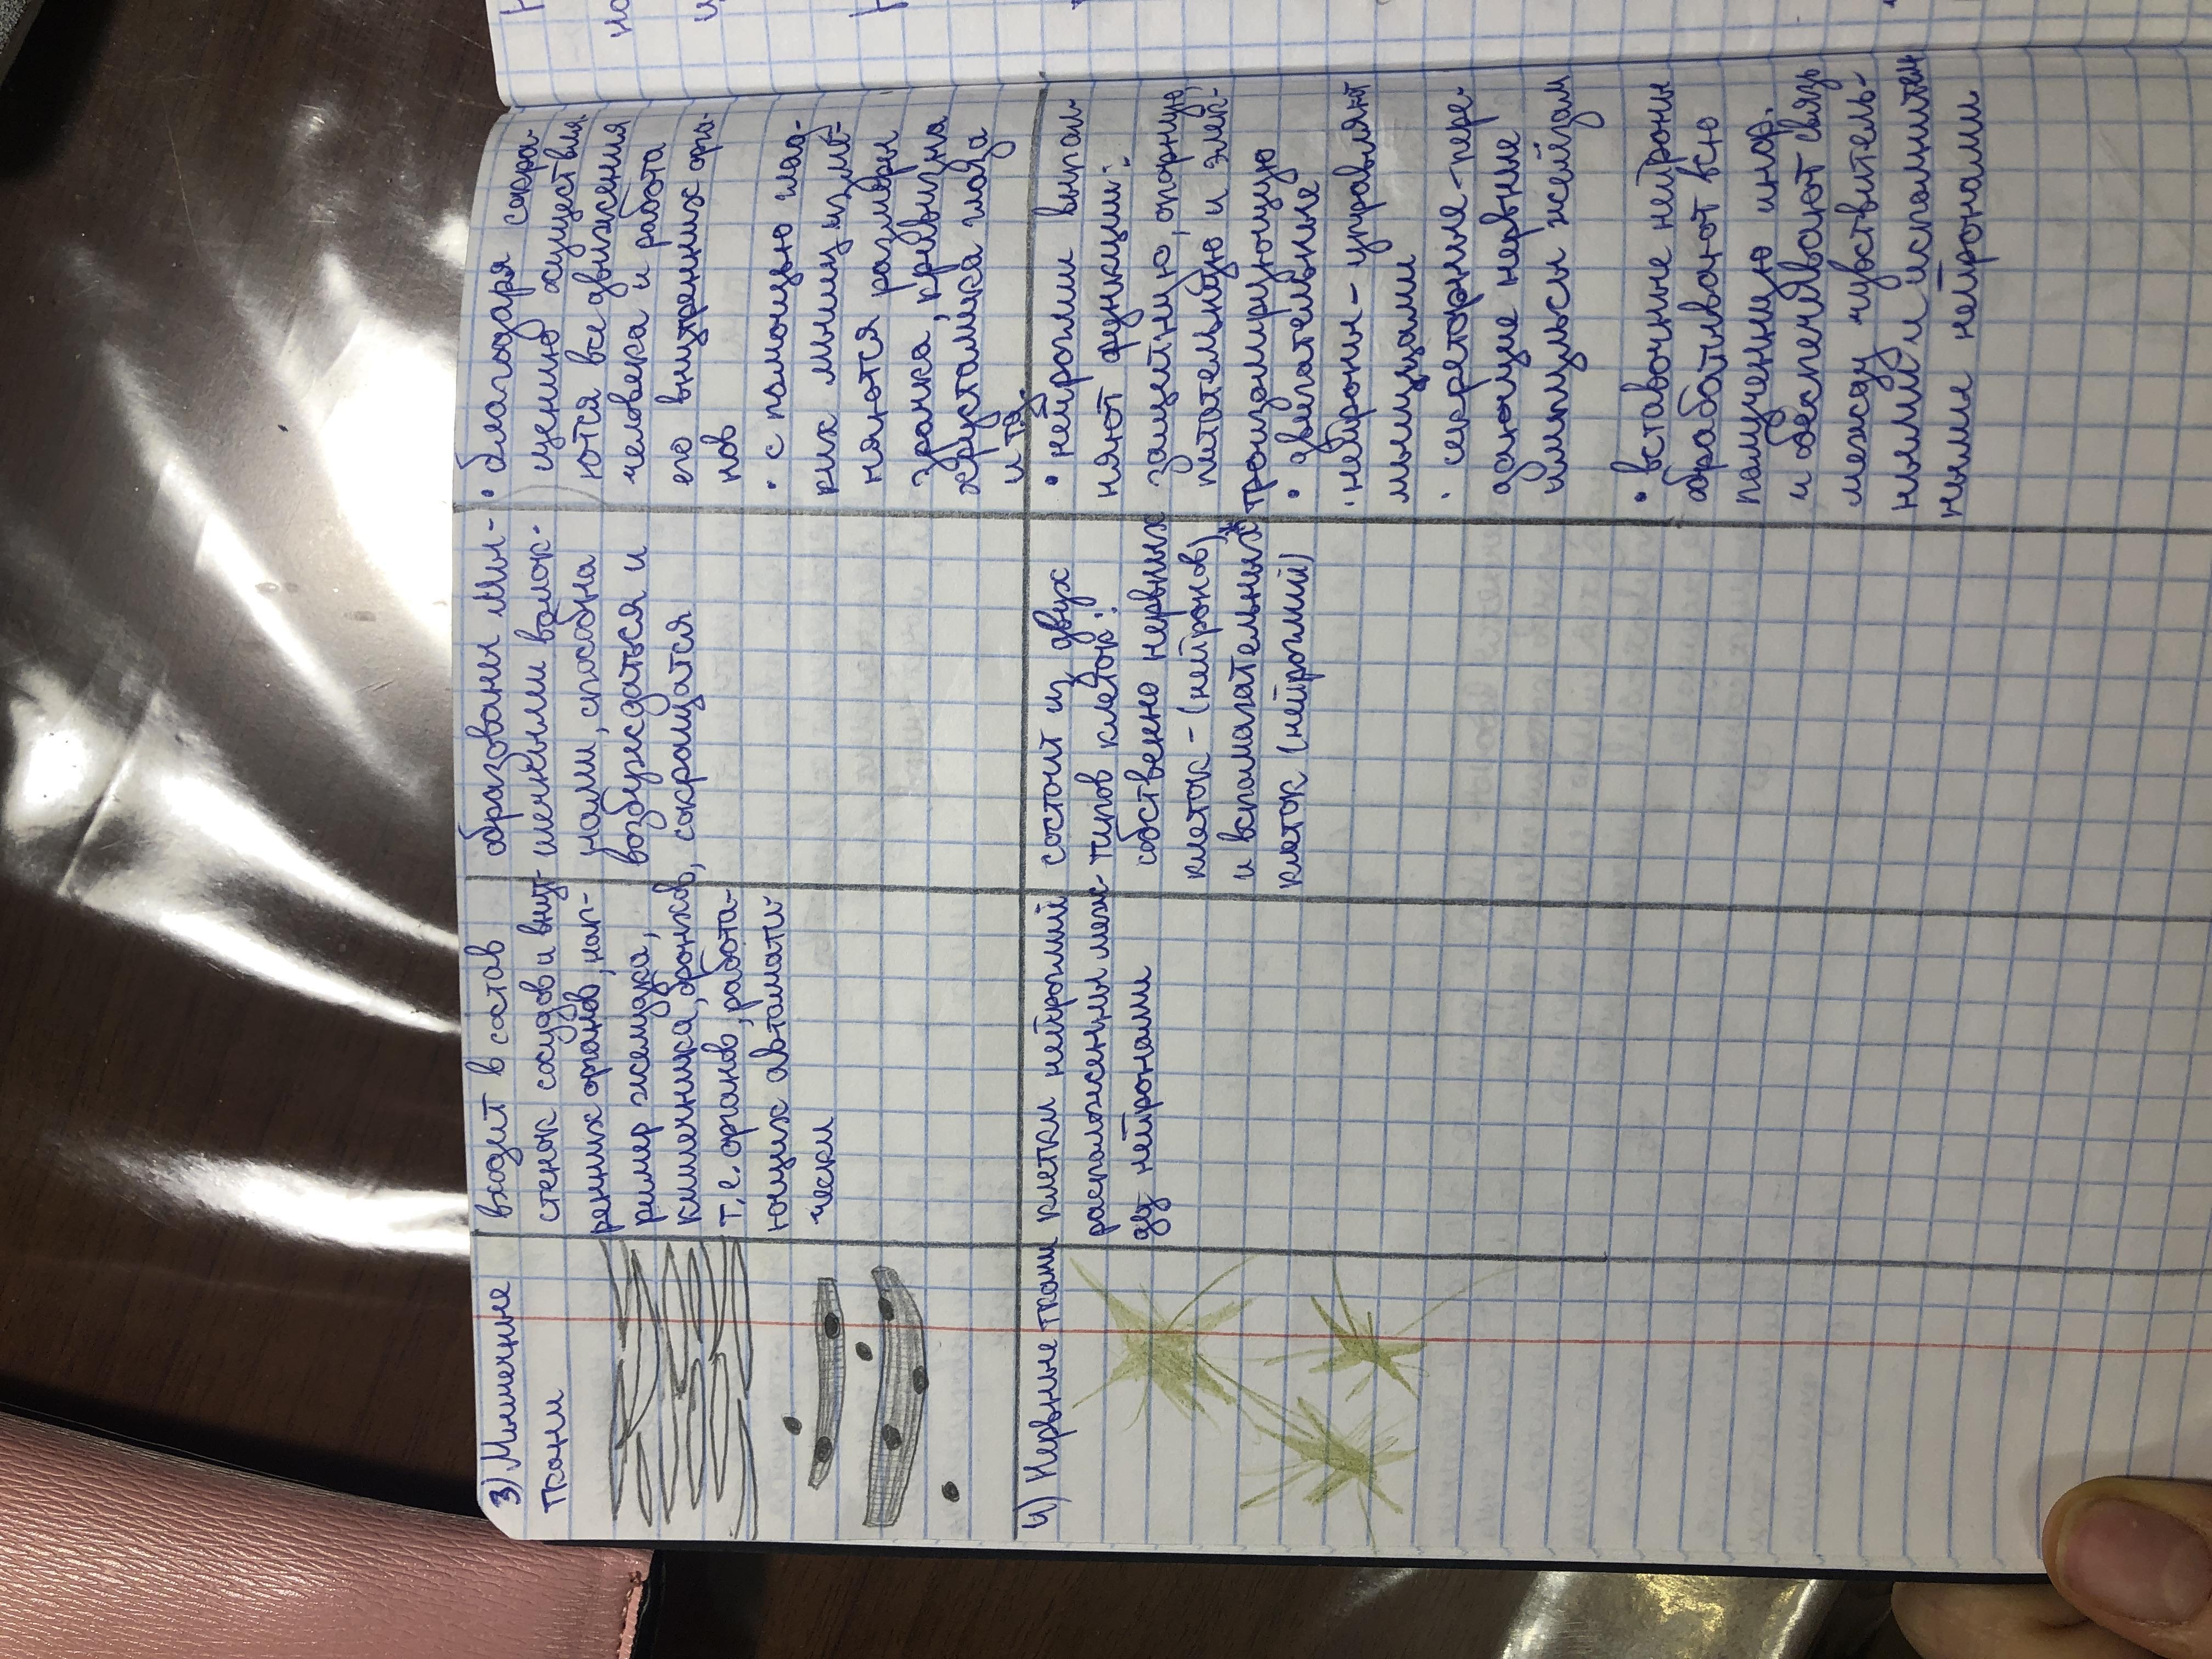 3) Мышечные
ткани
входит в состав
стенок сосудов и внут-
ренних органов, нап-
ример желудка,
кишечника, бронхов,
т.е. органов, работа-
ющих автомати-
чески
образованы мы-
шечными волок-
нами, способна
возбуждаться и
сокращатся
• благодаря сокра-
щению осуществля-
ются все движения
человека и работа
его внутренних орга-
нов
• с помощью глад-
ких мышц изме-
няются размеры
зрачка, кривизна
хрусталика глаза
и тд.
4) Нервные ткани
клетки нейроглии
расположены меж-
ду нейронами
состоит из двух
типов клеток:
собственно нервных
клеток - (нейронов)
и вспомагательных
клеток (нейроглии)
• нейроглии выпол-
няют функции:
защитную, опорную,
питательную и элек-
троизолирующую
• двигательные
нейроны - управляют
мышцами
• секреторные - пере-
дающие нервные
импульсы железам
• вставочные нейроны
обрабатывают всю
полученную инфор.
и обеспечивают связь
между чувствитель-
ными и исполнитель
ными нейронами